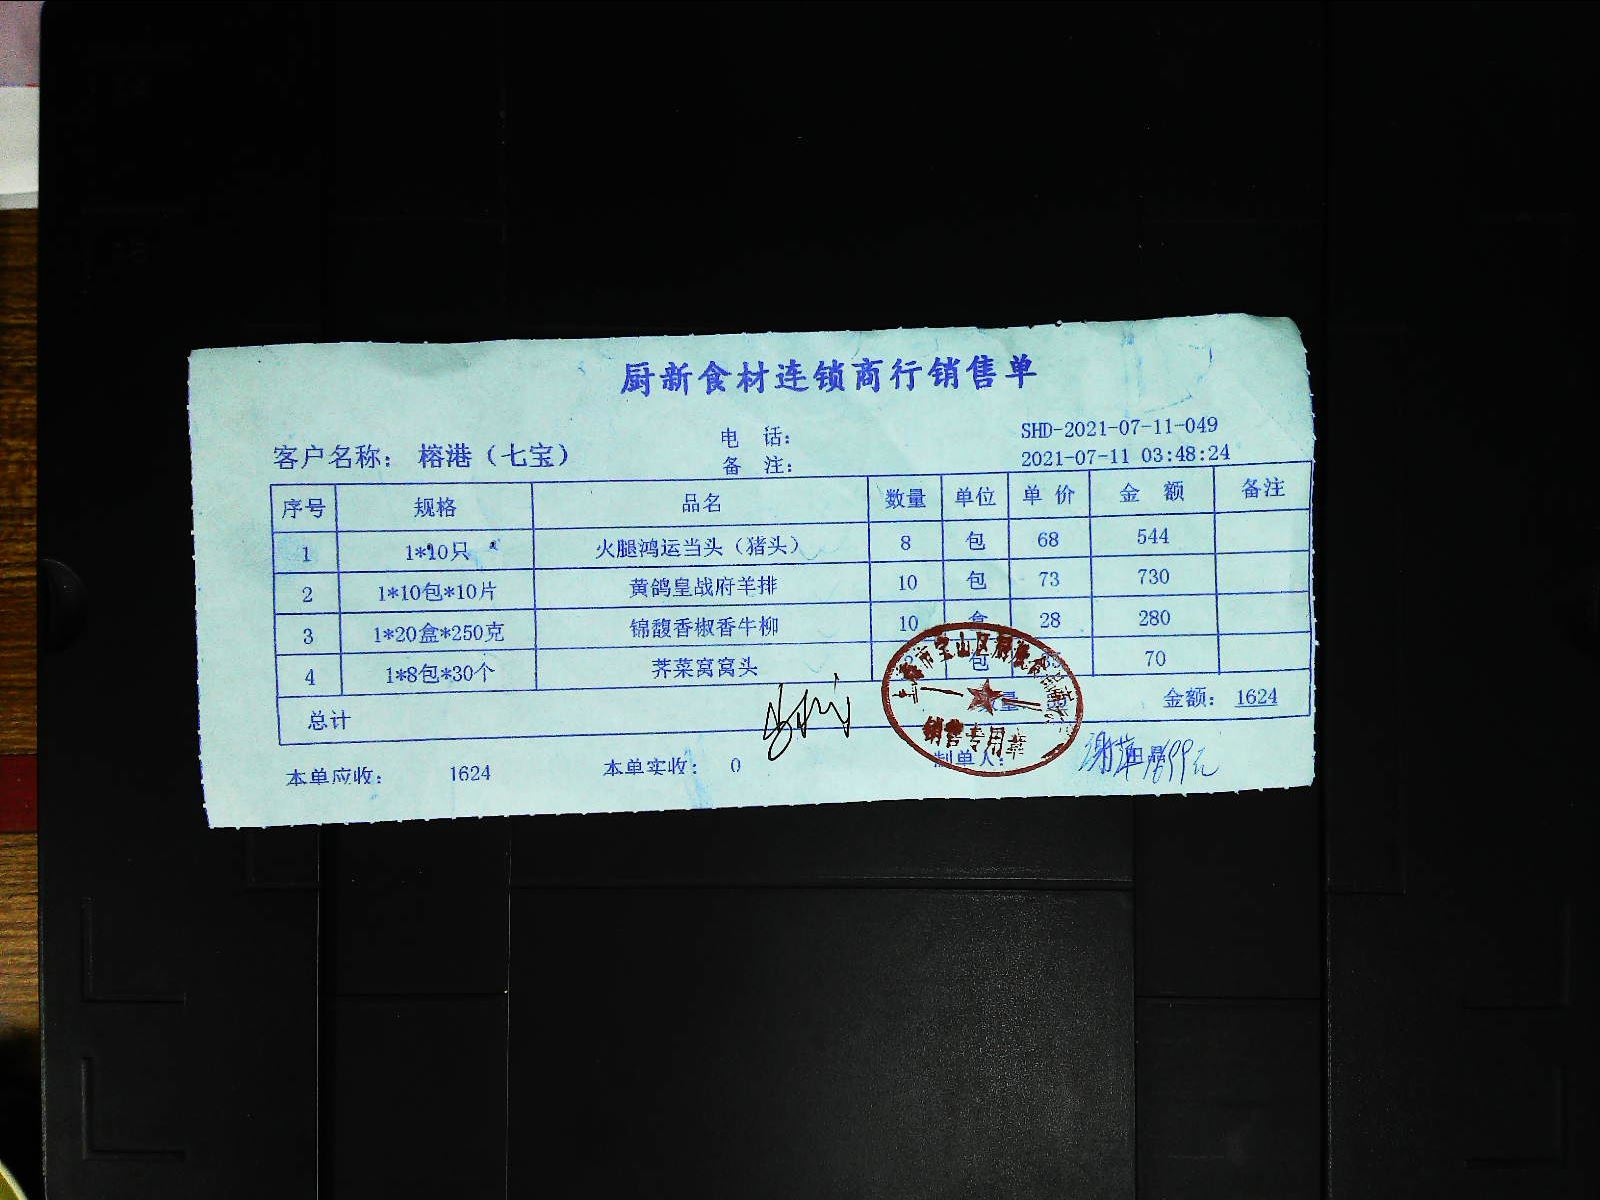 厨新食材连锁商行销售单
客户名称: 榕港（七宝） 电 话: SHD-2021-07-11-049
备 注: 2021-07-11 03:48:24
序号 规格 品名 数量 单位 单 价 金 额 备注
1 1*10只 火腿鸿运当头（猪头） 8 包 68 544
2 1*10包*10片 黄鸽皇战府羊排 10 包 73 730
3 1*20盒*250克 锦馥香椒香牛柳 10 盒 28 280
4 1*8包*30个 荠菜窝窝头 包 70
总计 数量: 金额: 1624
本单应收: 1624 本单实收: 0 制单人:
上海市宝山区
销售专用章